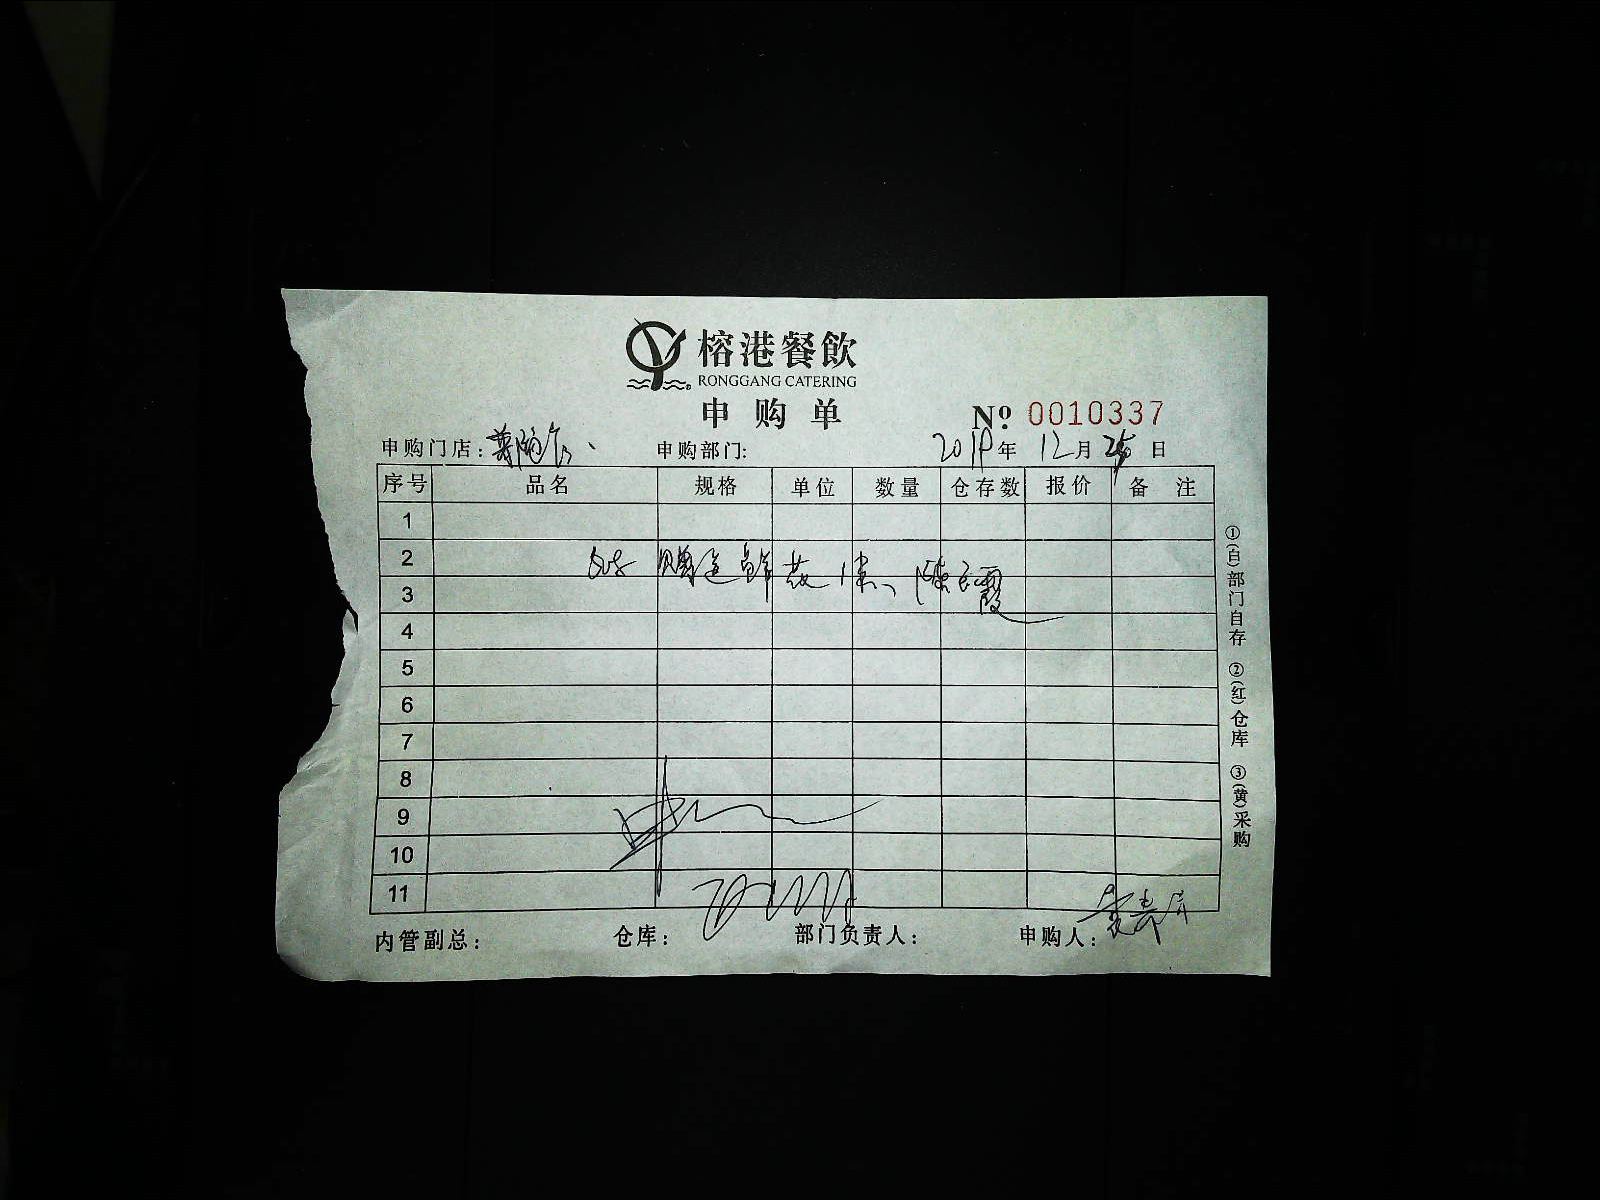 榕港餐飲
RONGGANG CATERING
申购单
№ 0010337
申购门店: 申购部门: 2018年 12月 25日
序号 品名 规格 单位 数量 仓存数 报价 备注
1
2
赠送鲜花1束、陈 霞
3
4
5
6
7
8
9
10
11
内管副总: 仓库: 部门负责人: 申购人:
①(白)部门自存 ②(红)仓库 ③(黄)采购